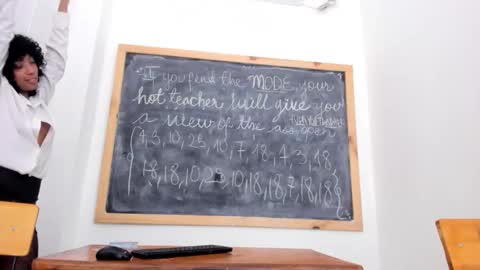 If you find the MODE, your
hot teacher will give you
a view of the ass open
EVERYTHING
{4,3,10,25,10,7,18,4,3,18,
18,18,10,25,10,18,18,7,18,18}